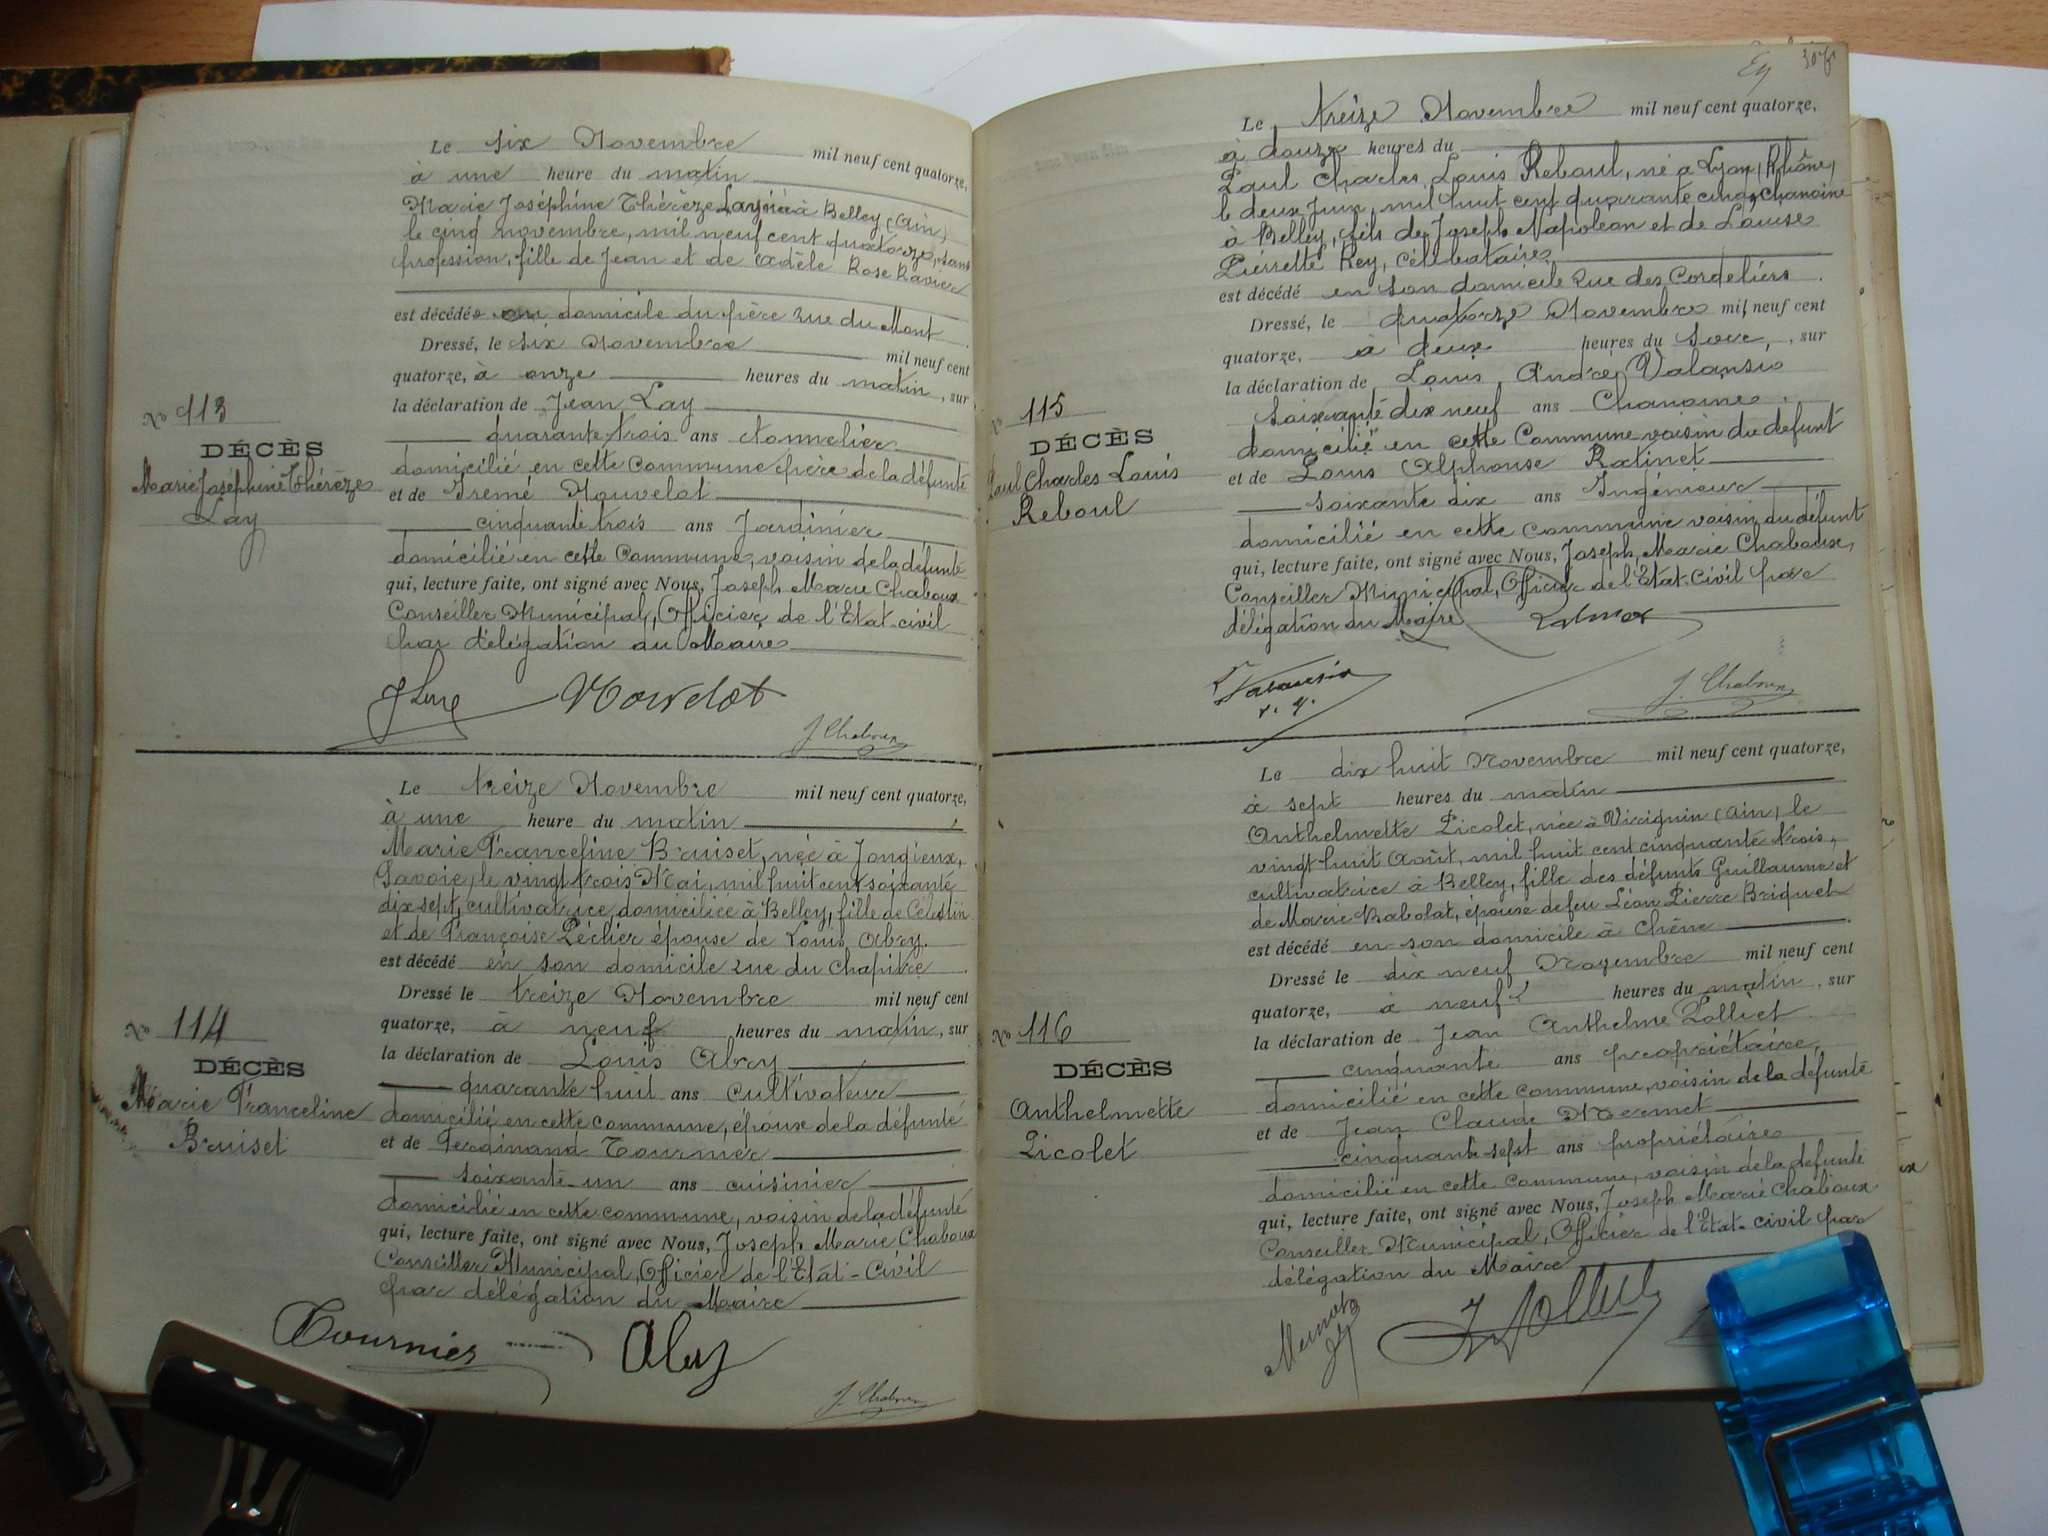 Le six Novembre mil neuf cent quatorze,
à une heure du matin
Marie Joséphine Thérèze Lay née à Belley (Ain)
le cinq novembre, mil neuf cent quatorze, sans
profession, fille de Jean et de Adèle Rose Ravier
est décédée au domicile du père rue du Mont
Dressé, le six Novembre mil neuf cent
quatorze, à onze heures du matin, sur
la déclaration de Jean Lay
quarante trois ans tonnelier
domicilié en cette commune père de la défunte
et de Irené Nouvelot
cinquante trois ans Jardinier
domicilié en cette Commune, voisin de la défunte
qui, lecture faite, ont signé avec Nous, Joseph Marie Chaboux
Conseiller Municipal, Officier de l'Etat-civil
par délégation du Maire
No 113
DÉCÈS
Marie Joséphine Thérèze
Lay
J Chaboux
Le treize Novembre mil neuf cent quatorze,
à une heure du matin
Marie Franceline Bruiset, née à Jongieux,
(Savoie) le vingt trois Mai, mil huit cent soixante
dix sept, cultivatrice domiciliée à Belley, fille de Célestin
et de Françoise Péclier épouse de Louis Abry.
est décédé en son domicile rue du Chapitre
Dressé le treize Novembre mil neuf cent
quatorze, à neuf heures du matin, sur
la déclaration de Louis Abry
quarante huit ans cultivateur
domicilié en cette commune, époux de la défunte
et de Ferdinand Tournier
soixante un ans cuisinier
domicilié en cette commune, voisin de la défunte
qui, lecture faite, ont signé avec Nous, Joseph Marie Chaboux
Conseiller Municipal, Officier de l'Etat-Civil
par délégation du Maire
No 114
DÉCÈS
Marie Franceline
Bruiset
Tournier Abry
J. Chaboux
Le treize Novembre mil neuf cent quatorze,
à douze heures du
Paul Charles Louis Reboul, né à Lyon, (Rhône)
le deux Juin, mil huit cent quarante cinq, Chanoine
à Belley, fils de Joseph Napoléon et de Louise
Pierrette Rey, célibataire
est décédé en son domicile rue des Cordeliers
Dressé, le quatorze Novembre mil neuf cent
quatorze, à deux heures du soir, sur
la déclaration de Louis André Valansio
soixante dix neuf ans Chanoine,
domicilié en cette Commune voisin du défunt
et de Louis Alphonse Ratinet
soixante dix ans Ingénieur
domicilié en cette commune voisin du défunt
qui, lecture faite, ont signé avec Nous, Joseph Marie Chaboux,
Conseiller Municipal, Officier de l'Etat-Civil par
délégation du Maire
No 115
DÉCÈS
Paul Charles Louis
Reboul
Valansio
v. g.
J. Chaboux
Le dix huit Novembre mil neuf cent quatorze,
à sept heures du matin
Anthelmette Picolet, née à Virignin (Ain) le
vingt huit Août, mil huit cent cinquante trois,
cultivatrice à Belley, fille des défunts Guillaume et
de Marie Rabolat, épouse de feu Léon Pierre Briquet
est décédé en son domicile à Chêne
Dressé le dix neuf Novembre mil neuf cent
quatorze, à neuf heures du matin, sur
la déclaration de Jean Anthelme Polliet
cinquante ans propriétaire,
domicilié en cette commune, voisin de la défunte
et de Jean Claude Mermet
cinquante-sept ans propriétaire
domicilié en cette commune, voisin de la défunte
qui, lecture faite, ont signé avec Nous, Joseph Marie Chaboux
Conseiller Municipal, Officier de l'Etat-civil par
délégation du Maire
No 116
DÉCÈS
Anthelmette
Picolet